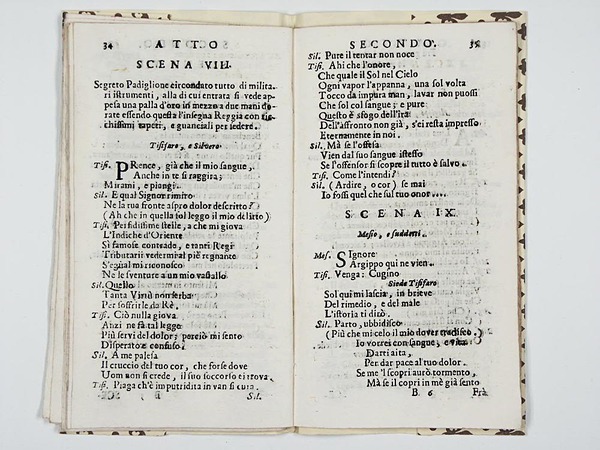 34 ATTO
SCENA VIII.
Segreto Padiglione circondato tutto di milita-
ri istrumenti, alla di cui entrata si vede ap-
pesa una palla d'oro in mezzo a due mani do-
rate essendo questa l'insegna Reggia con ric-
chissimi tapeti, e guanciali per sedere.
Tisifaro, e Silvero
Tisi. PRence, già che il mio sangue,
Anche in te si raggira;
Mirami, e piangi.
Sil. E qual Signor rimiro
Ne la tua fronte aspro dolor descritto?
(Ah che in quella sol leggo il mio delitto)
Tisi. Perfidissime stelle, a che mi giova
L'Indiche d'Oriente
Sì famose contrade, e tanti Regi
Tributarii vedermi al piè regnante
S'egual mi riconosco
Ne le sventure a un mio vassallo
Sil. Quello
Tanta Virtù non serba
Per soffrirle da Rè.
Tisi. Ciò nulla giova
Anzi ne fà tal legge
Più servi del dolor; perciò mi sento
Disperato e confuso.
Sil. A me palesa
Il cruccio del tuo cor, che forse dove
Uom non si crede, il suo soccorso ei trova.
Tisi. Piaga ch'è imputridita in van si cura.
Sil.
SECONDO. 35
Sil. Pure il tentar non noce
Tisi. Ahi che l'onore,
Che quale il Sol nel Cielo
Ogni vapor l'appanna, una sol volta
Tocco da impura man, lavar non puossi
Che sol col sangue; e pure
Questo è sfogo dell'ira
Dell'affronto non già, s'ei resta impresso
Eternamente in noi.
Sil. Mà se l'offesa
Vien dal suo sangue istesso
Se l'offensor si scopre il tutto è salvo.
Tisi. Come l'intendi?
Sil. (Ardire, o cor) se mai
Io fossi quel che sul tuo onor....
SCENA IX.
Mesio, e sudetti.
Mes. SIgnore
Argippo qui ne vien.
Tisi. Venga: Cugino
Siede Tisifaro
Sol qui mi lascia, in breve
Del rimedio, e del male
L'istoria ti dirò.
Sil. Parto, ubbidisco
(Più che mi celo il mio dover tradisco.)
Io vorrei con sangue, e vita
Darti aita,
Per dar pace al tuo dolor.
Se me 'l scopri aurò tormento,
Mà se il copri in mè già sento
B. 6 Frà